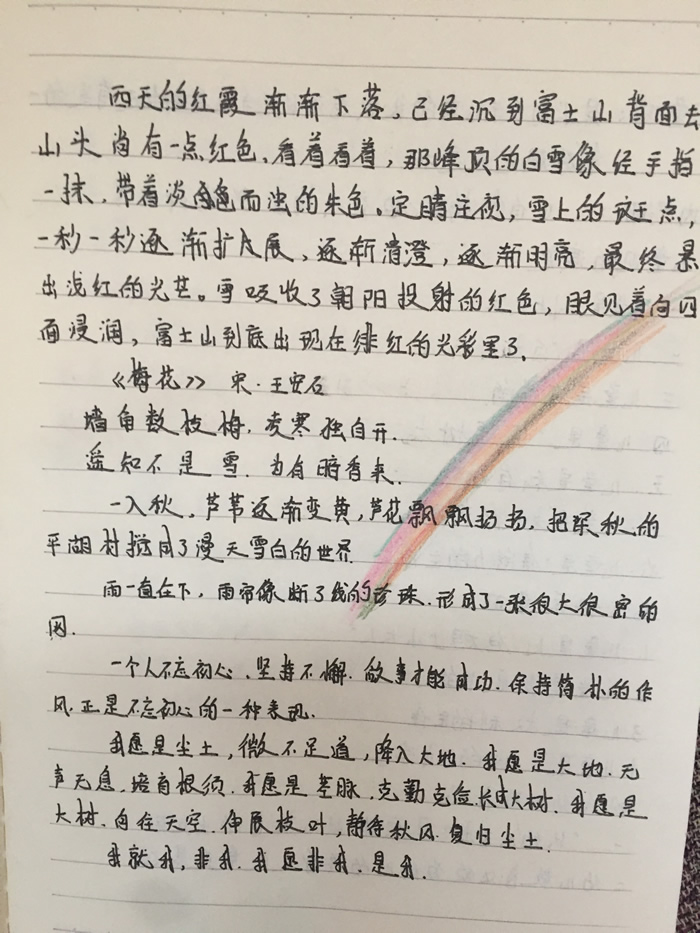 西天的红霞渐渐下落,已经沉到富士山背面去
山头尚有一点红色、看着看着,那峰顶的白雪像经手指
一抹、带着淡色而浊的朱色。定睛庄视,雪上的斑点,
一秒一秒逐渐扩展、逐渐清澄,逐渐明亮,最终泉
出浅红的光芒。雪吸收了朝阳投射的红色,眼见着向四
面浸润,富士山到底出现在绯红的光彩里了。
《梅花》 宋·王安石
墙角数枝梅,凌寒独自开.
遥知不是雪.为有暗香来.
一入秋,芦苇逐渐变黄,芦花飘飘扬扬,把深秋的
平湖村搅成了漫天雪白的世界.
雨一直在下,雨帘像断了线的珍珠.形成了一张很大很密的
网.
一个人不忘初心、坚持不懈.做事才能成功.保持简朴的作
风.正是不忘初心的一种表现.
我愿是尘土,微不足道,降入大地.我愿是大地.无
声无息.培育根须.我愿是茎脉.克勤克俭长成大树.我愿是
大树.向往天空.伸展枝叶,静待秋风.复归尘土.
我就我,非我.我愿非我.是我.